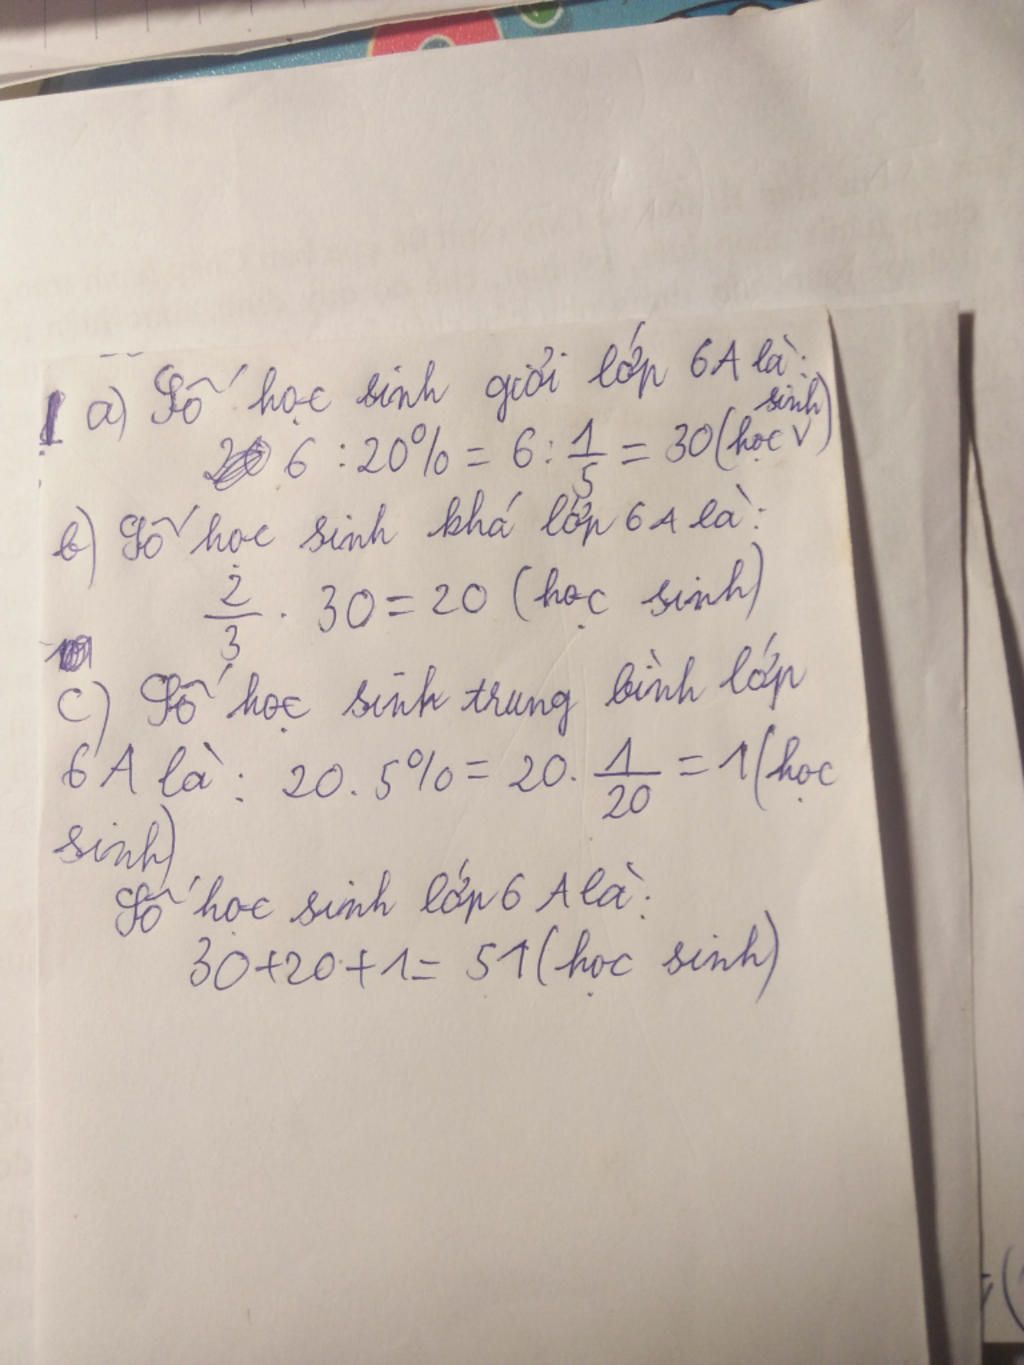 1 a) Số học sinh giỏi lớp 6A là:
6 : 20% = 6 : 1/5 = 30 (học sinh)
b) Số học sinh khá lớp 6A là:
2/3 . 30 = 20 (học sinh)
c) Số học sinh trung bình lớp
6A là: 20 . 5% = 20 . 1/20 = 1 (học
sinh)
Số học sinh lớp 6A là:
30 + 20 + 1 = 51 (học sinh)